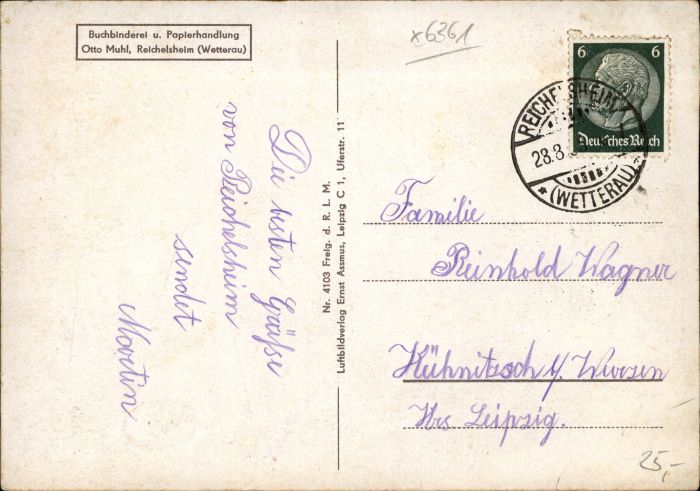 Buchbinderei u. Papierhandlung
Otto Muhl, Reichelsheim (Wetterau)
x6361
6 6
Deutsches Reich
REICHELSHEIM
28.8.
(WETTERAU)
Die besten Grüße
von Reichelsheim
sendet
Martin
Nr. 4103 Freig. d. R. L. M.
Luftbildverlag Ernst Assmus, Leipzig C 1, Uferstr. 11
Familie
Reinhold Wagner
Kühnitzsch b/ Wurzen
Krs Leipzig.
25,-